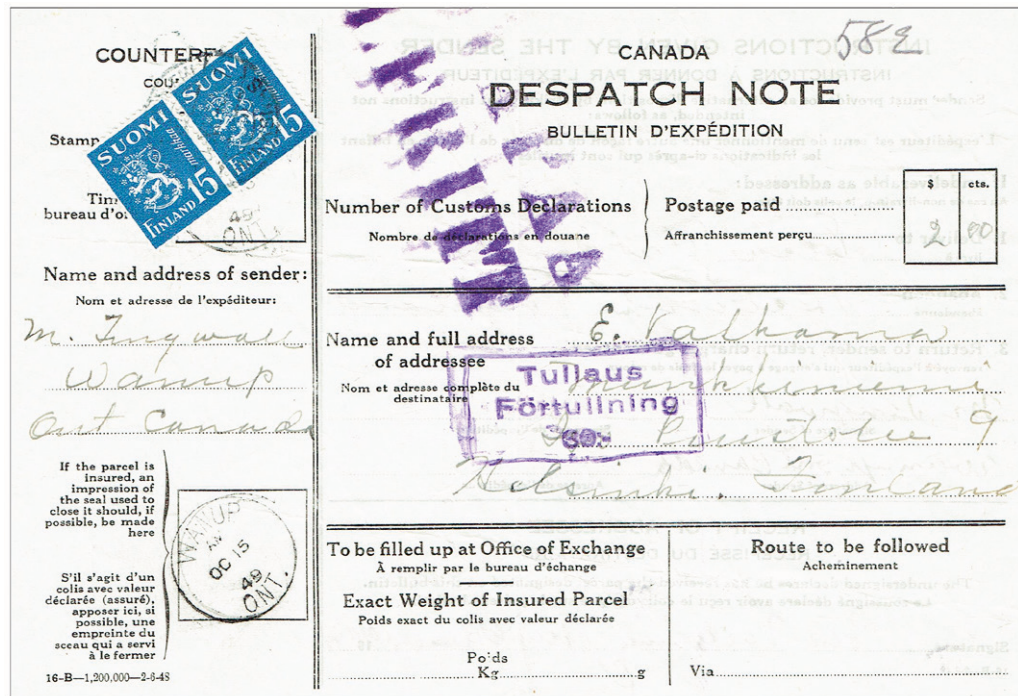 COUNTERF
COU
SUOMI
15
FINLAND
SUOMI
markkaa
15
FINLAND
Stamp
Tim
bureau d'o
49
ONT.
Name and address of sender:
Nom et adresse de l'expéditeur:
M. Tingwall
Wanup
Ont Canada
If the parcel is
insured, an
impression of
the seal used to
close it should, if
possible, be made
here
S'il s'agit d'un
colis avec valeur
déclarée (assuré),
apposer ici, si
possible, une
empreinte du
sceau qui a servi
à le fermer
WANUP
AM
OC 15
49
ONT.
16-B—1,200,000—2-6-48
CANADA
DESPATCH NOTE
BULLETIN D'EXPÉDITION
Number of Customs Declarations
Nombre de déclarations en douane
Postage paid
Affranchissement perçu
$ cts.
2 00
Name and full address
of addressee
Nom et adresse complète du
destinataire
E. Valkama
Munkkiniemi
9
Helsinki. Finland
Tullaus
Förtullning
60:-
To be filled up at Office of Exchange
À remplir par le bureau d'échange
Exact Weight of Insured Parcel
Poids exact du colis avec valeur déclarée
Poids
Kg. g
Route to be followed
Acheminement
Via